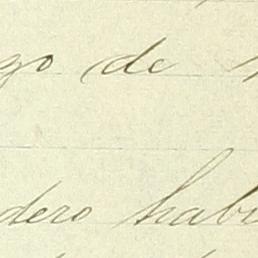 go de
dero habi